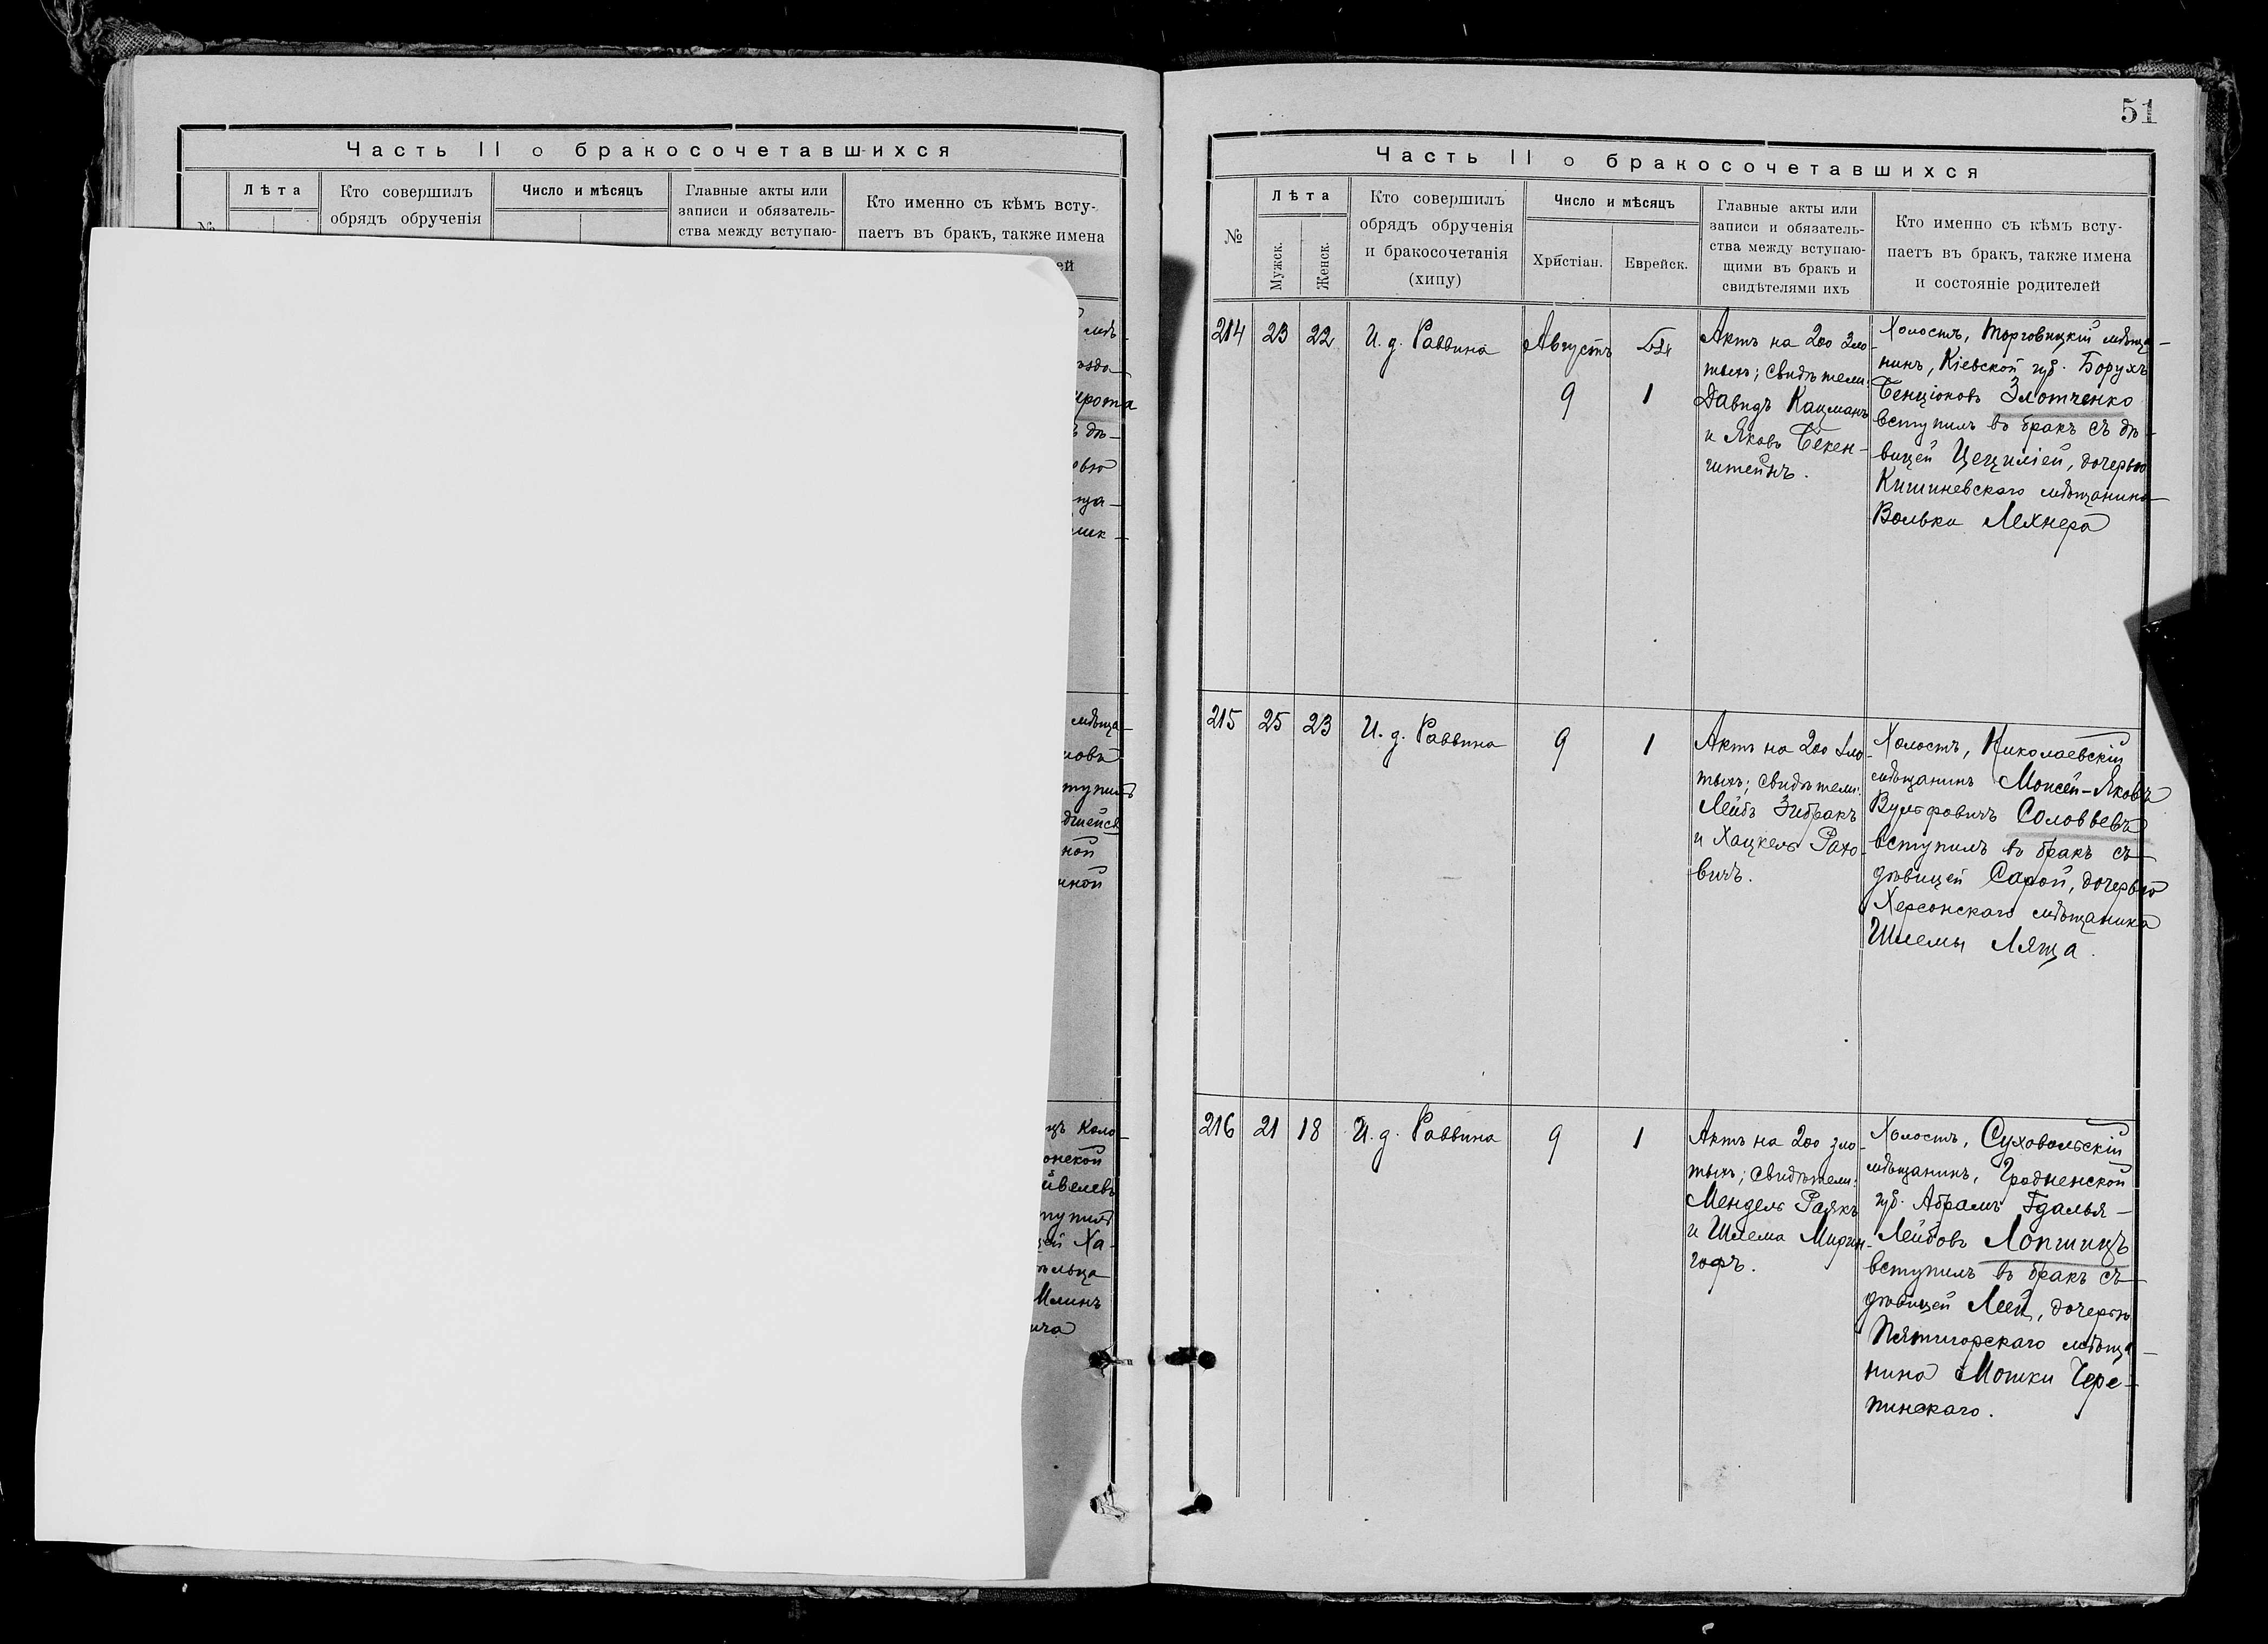 Часть II о бракосочетавшихся
Лѣта
Кто совершилъ
обрядъ обрученія
Число и мѣсяцъ
Главные акты или
записи и обязатель-
ства между вступаю-
Кто именно съ кѣмъ всту-
паетъ въ бракъ, также имена
ей
51
Часть II о бракосочетавшихся
№
Лѣта
Мужск.
Женск.
Кто совершилъ
обрядъ обрученія
и бракосочетанія
(хипу)
Число и мѣсяцъ
Христіан.
Еврейск.
Главные акты или
записи и обязатель-
ства между вступаю-
щими въ бракъ и
свидѣтелями ихъ
Кто именно съ кѣмъ всту-
паетъ въ бракъ, также имена
и состояніе родителей
214
23
22
И. д. Раввина
Августъ
9
1
Актъ на 200 зло-
тыхъ; свидѣтели:
Давидъ Кацманъ
и Яковъ Бекен-
штейнъ.
Холостъ, Торговицкій мѣща-
нинъ, Кіевской губ. Борухъ
Бенціоновъ Злотченко
вступилъ въ бракъ съ дѣ-
вицей Цециліей, дочерью
Кишиневскаго мѣщанина
Вольки Лехнера
215
25
23
И. д. Раввина
9
1
Актъ на 200 зло-
тыхъ; свидѣтели:
Лейбъ Зибракъ
и Хацкель Рахо-
вичъ.
Холостъ, Николаевскій
мѣщанинъ Моисей-Яковъ
Вульфовичъ Соловьевъ
вступилъ въ бракъ съ
дѣвицей Сарой, дочерью
Херсонскаго мѣщанина
Шлемы Ляща.
216
21
18
И. д. Раввина
9
1
Актъ на 200 зло-
тыхъ; свидѣтели:
Мендель Раякъ
и Шлема Мирин-
гофъ.
Холостъ, Суховольскій
мѣщанинъ, Гродненской
губ. Абрамъ Гдалья-
Лейбовъ Лопшицъ
вступилъ въ бракъ съ
дѣвицей Леей, дочерью
Пятигорскаго мѣща-
нина Мошки Чере-
пинскаго.